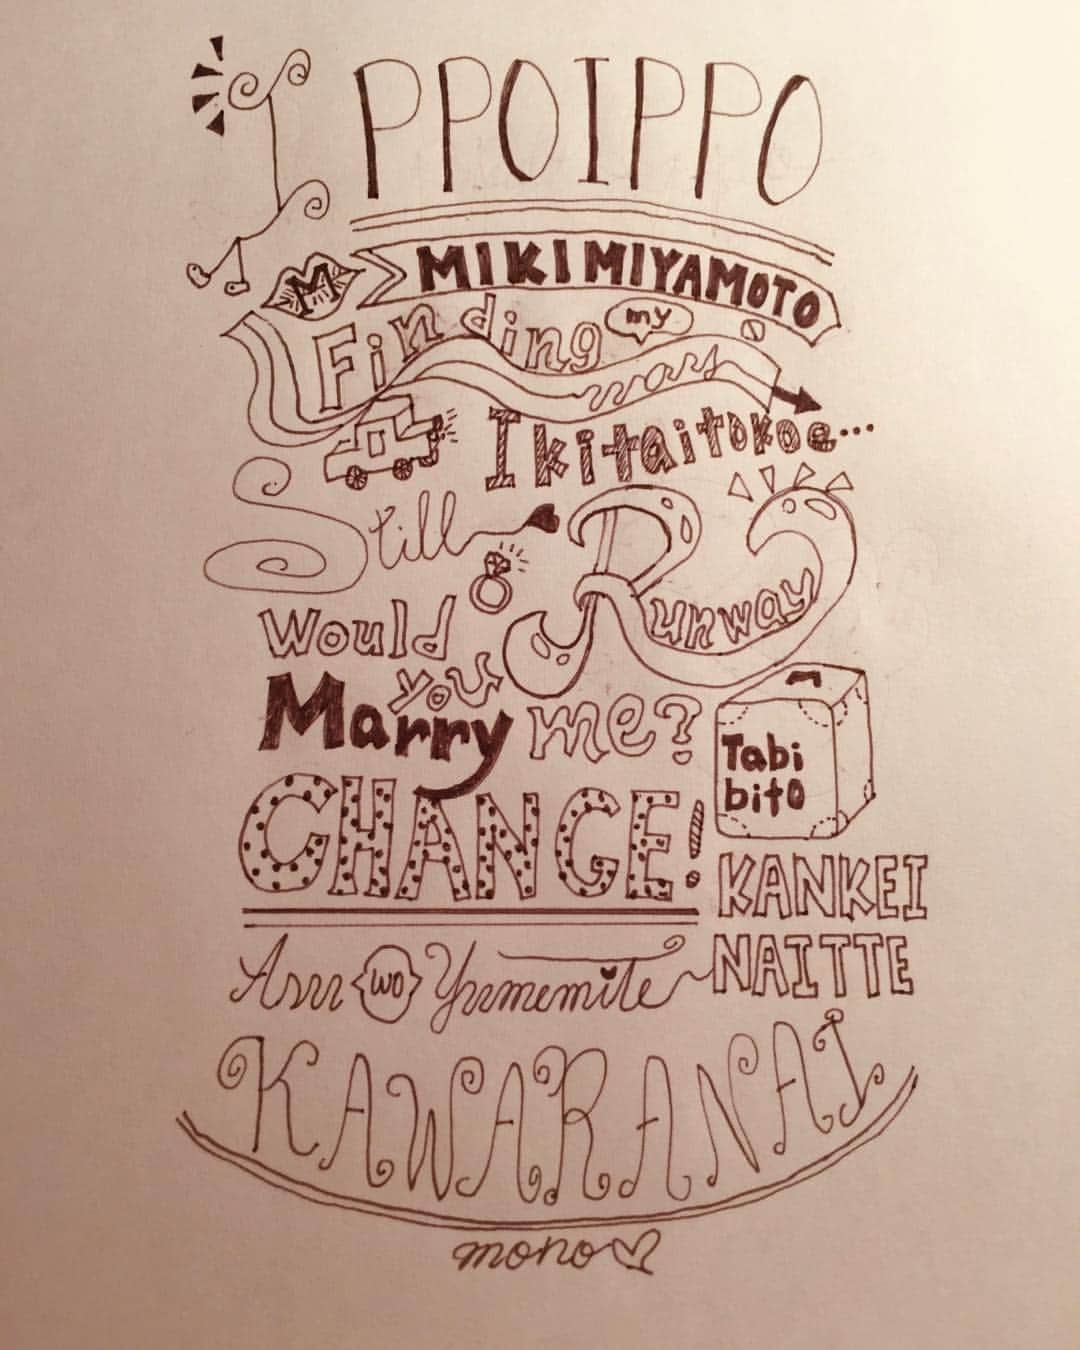 IPPOIPPO
M MIKIMIYAMOTO
Finding my way
Ikitaitokoe...
Still Runway
Would you
Marry me?
Tabi
bito
CHANGE!
KANKEI
NAITTE
Asu wo Yumemite
KAWARANAI
mono